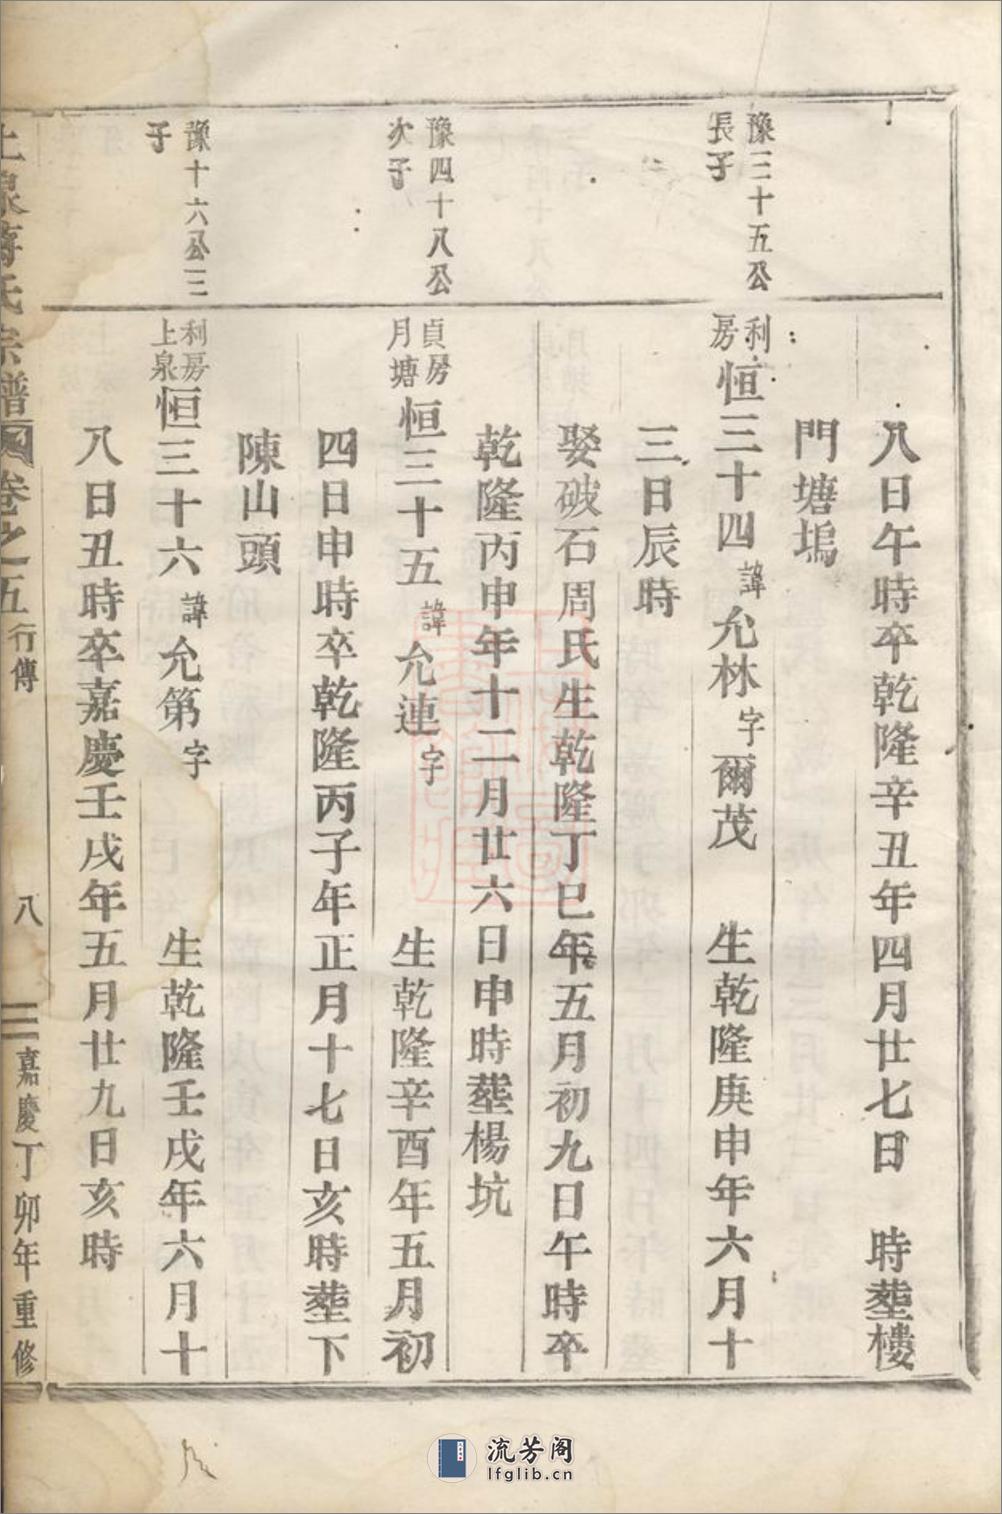 八日午時卒乾隆辛丑年四月廿七日 時塟樓
門塘塢
豫三十五公
長子
利房
恒三十四諱允林字爾茂 生乾隆庚申年六月十
三日辰時
娶破石周氏生乾隆丁巳年五月初九日午時卒
乾隆丙申年十二月廿六日申時塟楊坑
豫四十八公
次子
貞房
月塘
恒三十五諱允連字 生乾隆辛酉年五月初
四日申時卒乾隆丙子年正月十七日亥時塟下
陳山頭
豫十六公三
子
利房
上泉
恒三十六諱允第字 生乾隆壬戌年六月十
八日丑時卒嘉慶壬戌年五月廿九日亥時
上泉蔣氏宗譜 卷之五 行傳 八 嘉慶丁卯年重修
流芳阁
lfglib.cn